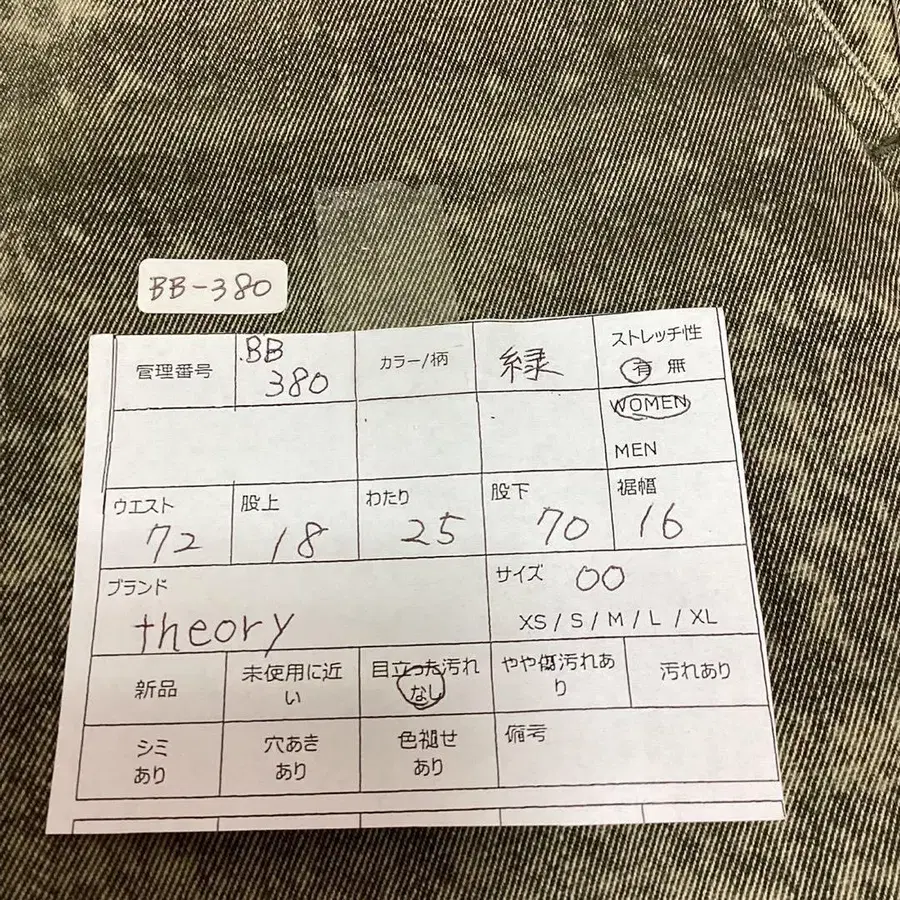 BB-380
管理番号
BB
380
カラー/柄
緑
ストレッチ性
有 無
WOMEN
MEN
ウエスト
72
股上
18
わたり
25
股下
70
裾幅
16
ブランド
theory
サイズ 00
XS / S / M / L / XL
新品
未使用に近
い
目立った汚れ
なし
やや傷汚れあ
り
汚れあり
シミ
あり
穴あき
あり
色褪せ
あり
備考